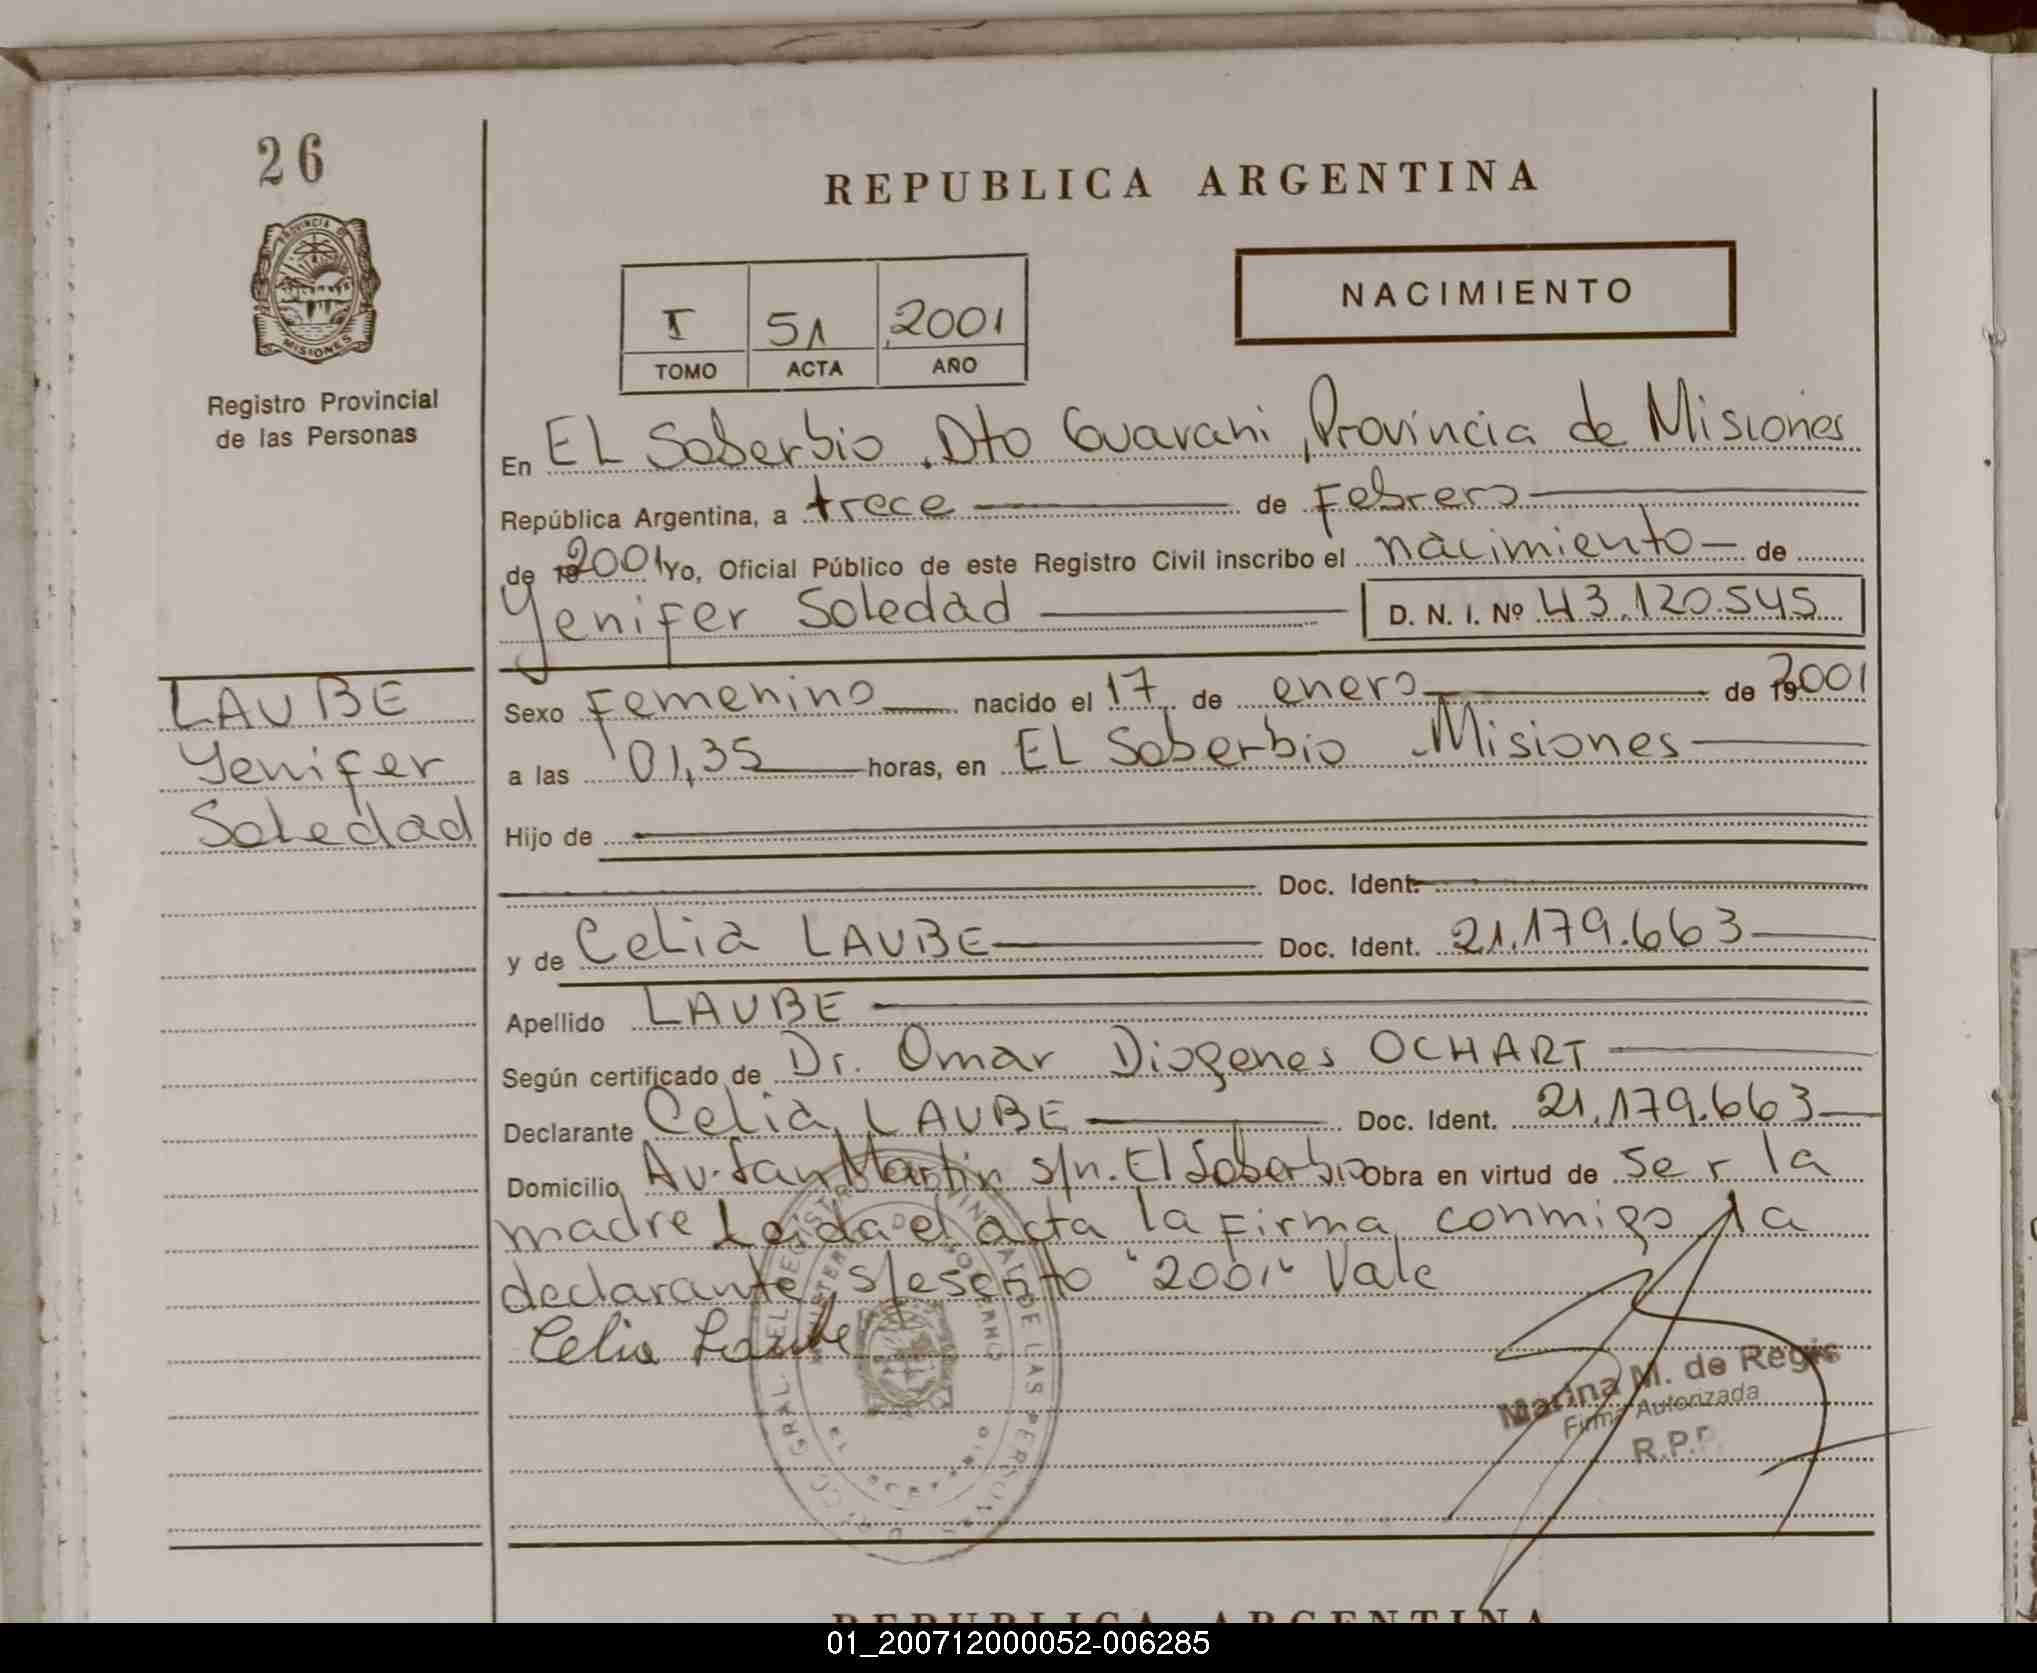 26
REPUBLICA ARGENTINA
PROVINCIA D
MISIONES
NACIMIENTO
I 51 2001
TOMO ACTA AÑO
Registro Provincial
de las Personas
En EL Soberbio, Dto Guarani, Provincia de Misiones
República Argentina, a trece de Febrero
de 19 2001 Yo, Oficial Público de este Registro Civil inscribo el nacimiento de
Yenifer Soledad D. N. I. Nº 43.120.545
LAUBE
Yenifer
Soledad
Sexo Femenino nacido el 17 de enero de 19 2001
a las 01,35 horas, en EL Soberbio Misiones
Hijo de
Doc. Ident.
y de Celia LAUBE Doc. Ident. 21.179.663
Apellido LAUBE
Según certificado de Dr. Omar Diogenes OCHART
Declarante Celia LAUBE Doc. Ident. 21.179.663
Domicilio Av. San Martin s/n. El Soberbio Obra en virtud de ser la
madre Leida el acta la firma conmigo la
declarante, s/escrito "2001" Vale
Celia Laube
Marina M. de Regis
Firma Autorizada
R.P.P.
REPUBLICA ARGENTINA
01_200712000052-006285